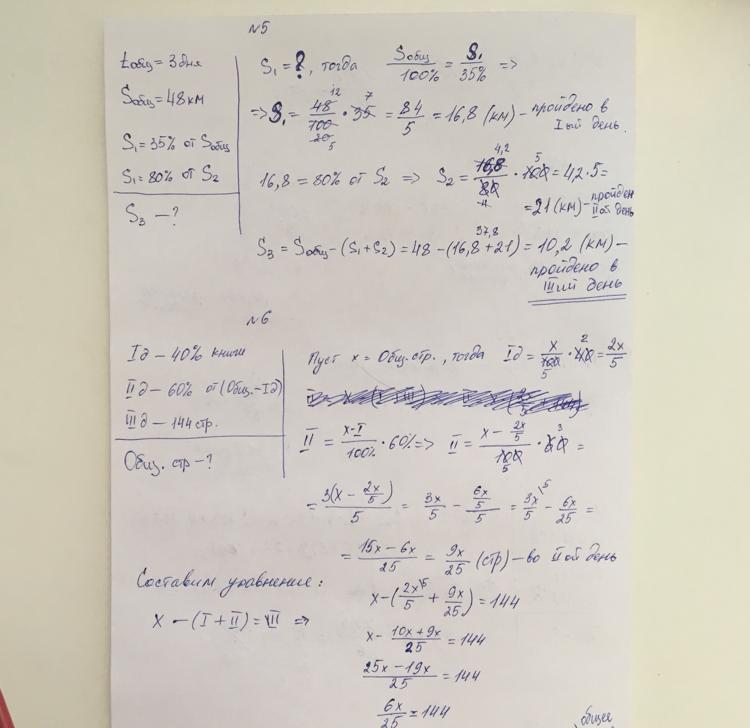 №5
tобщ = 3 дня
Sобщ = 48 км
S₁ = 35% от Sобщ
S₁ = 80% от S₂
S₃ — ?
S₁ = ?, тогда Sобщ/100% = S₁/35% =>
=> S₁ = 48/100 · 35 = 84/5 = 16,8 (км) – пройдено в
12 7 20 5
Iый день.
16,8 = 80% от S₂ => S₂ = 16,8/80 · 100 = 4,2 · 5 =
4,2 5 4
= 21 (км) – пройден
IIой день
S₃ = Sобщ – (S₁ + S₂) = 48 – (16,8 + 21) = 10,2 (км) –
37,8
пройдено в
IIIий день
№6
Iд – 40% книги
IIд – 60% от (Общ. – Iд)
IIIд – 144 стр.
Общ. стр – ?
Пуст x = Общ. стр., тогда Iд = x/100 · 40 = 2x/5
5 2
II = x-I/100% · 60% => II = x – 2x/5/100 · 60 =
5 3
= 3(x – 2x/5)/5 = 3x/5 – 6x/5/5 = 3x/5 \5 – 6x/25 =
= 15x – 6x/25 = 9x/25 (стр) – во IIой день
Составим уравнение:
x – (I + II) = III =>
x – (2x/5 \5 + 9x/25) = 144
x – 10x + 9x/25 = 144
25x – 19x/25 = 144
6x/25 = 144
общее